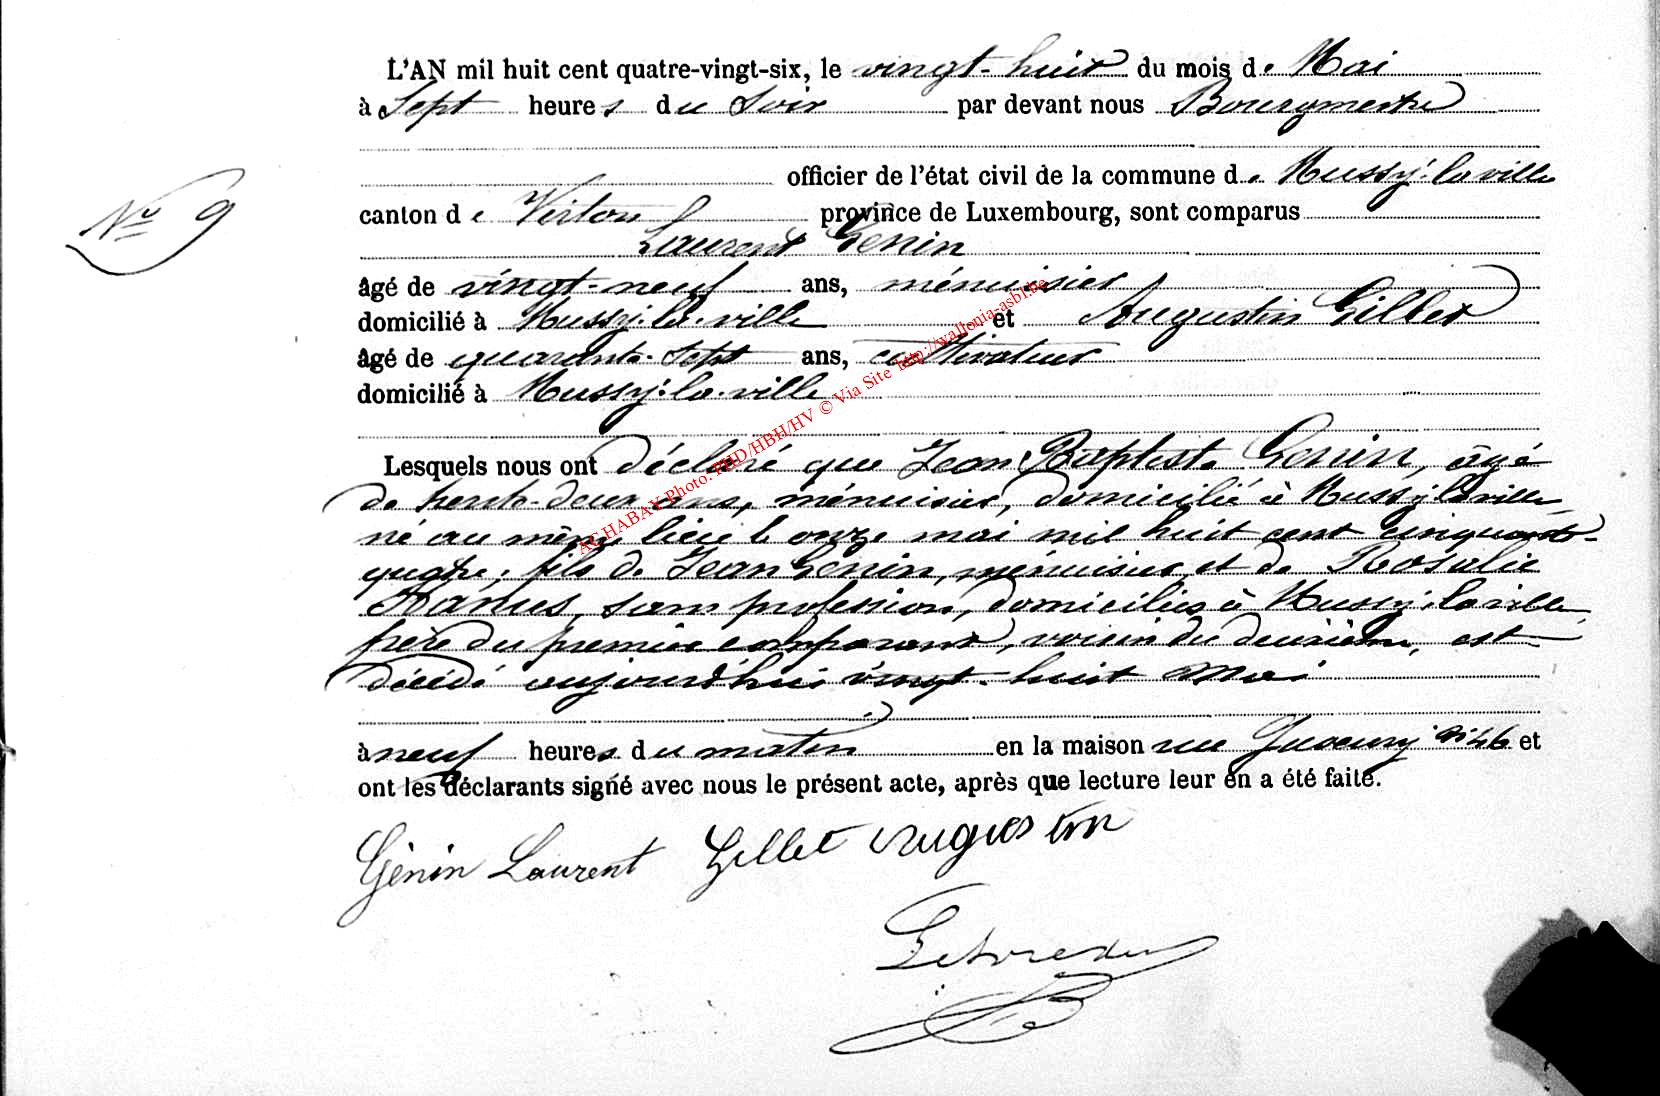 L'AN mil huit cent quatre-vingt-six, le vingt-huit du mois de Mai
à Sept heures du Soir par devant nous Bourgmestre
officier de l'état civil de la commune de Mussy-la-ville
N° 9
canton de Virton province de Luxembourg, sont comparus
Laurent Genin
âgé de vingt-neuf ans, ménuisier
domicilié à Mussy-la-ville et Augustin Gillet
âgé de quarante-sept ans, cultivateur
domicilié à Mussy-la-ville
AC HABAY Photo: PHD/HBH/HV © Via Site http://wallonia-asbl.be
Lesquels nous ont déclaré que Jean Baptiste Genin, âgé
de trente-deux ans, ménuisier, domicilié à Mussy-la-ville
né au même lieu le onze mai mil huit cent cinquante-
quatre, fils de Jean Genin, ménuisier et de Rosalie
sans profession, domiciliés à Mussy-la-ville
frère du premier comparant, voisin du deuxième, est
décédé aujourd'hui vingt-huit Mai
à neuf heures du matin en la maison rue n° 46 et
ont les déclarants signé avec nous le présent acte, après que lecture leur en a été faite.
Génin Laurent Gillet Augustin